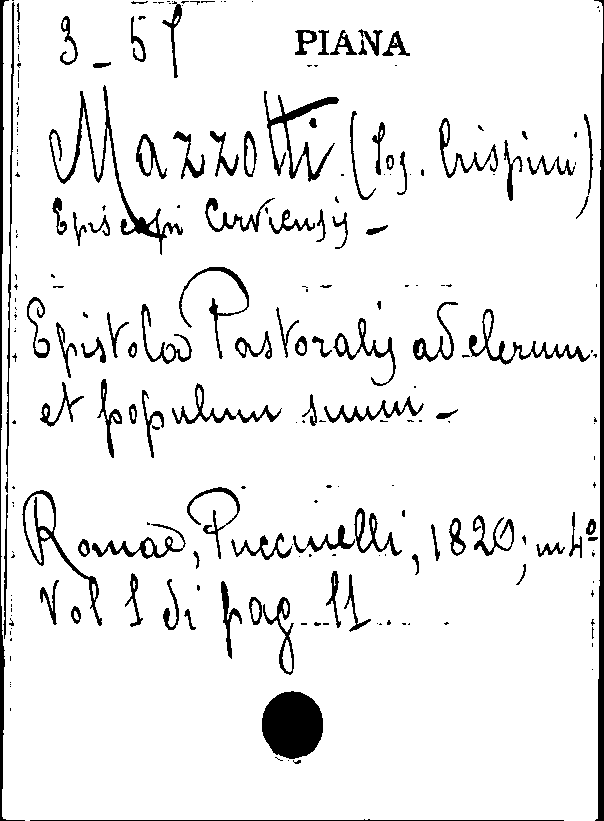 3 - 57 PIANA
Mazzotti (Jos. Crispini)
Episcopi Cerviensis -
Epistola Pastoralis ad clerum
et populum suum -
Romae, Puccinelli, 1820; in 4º.
Vol 1 di pag 11